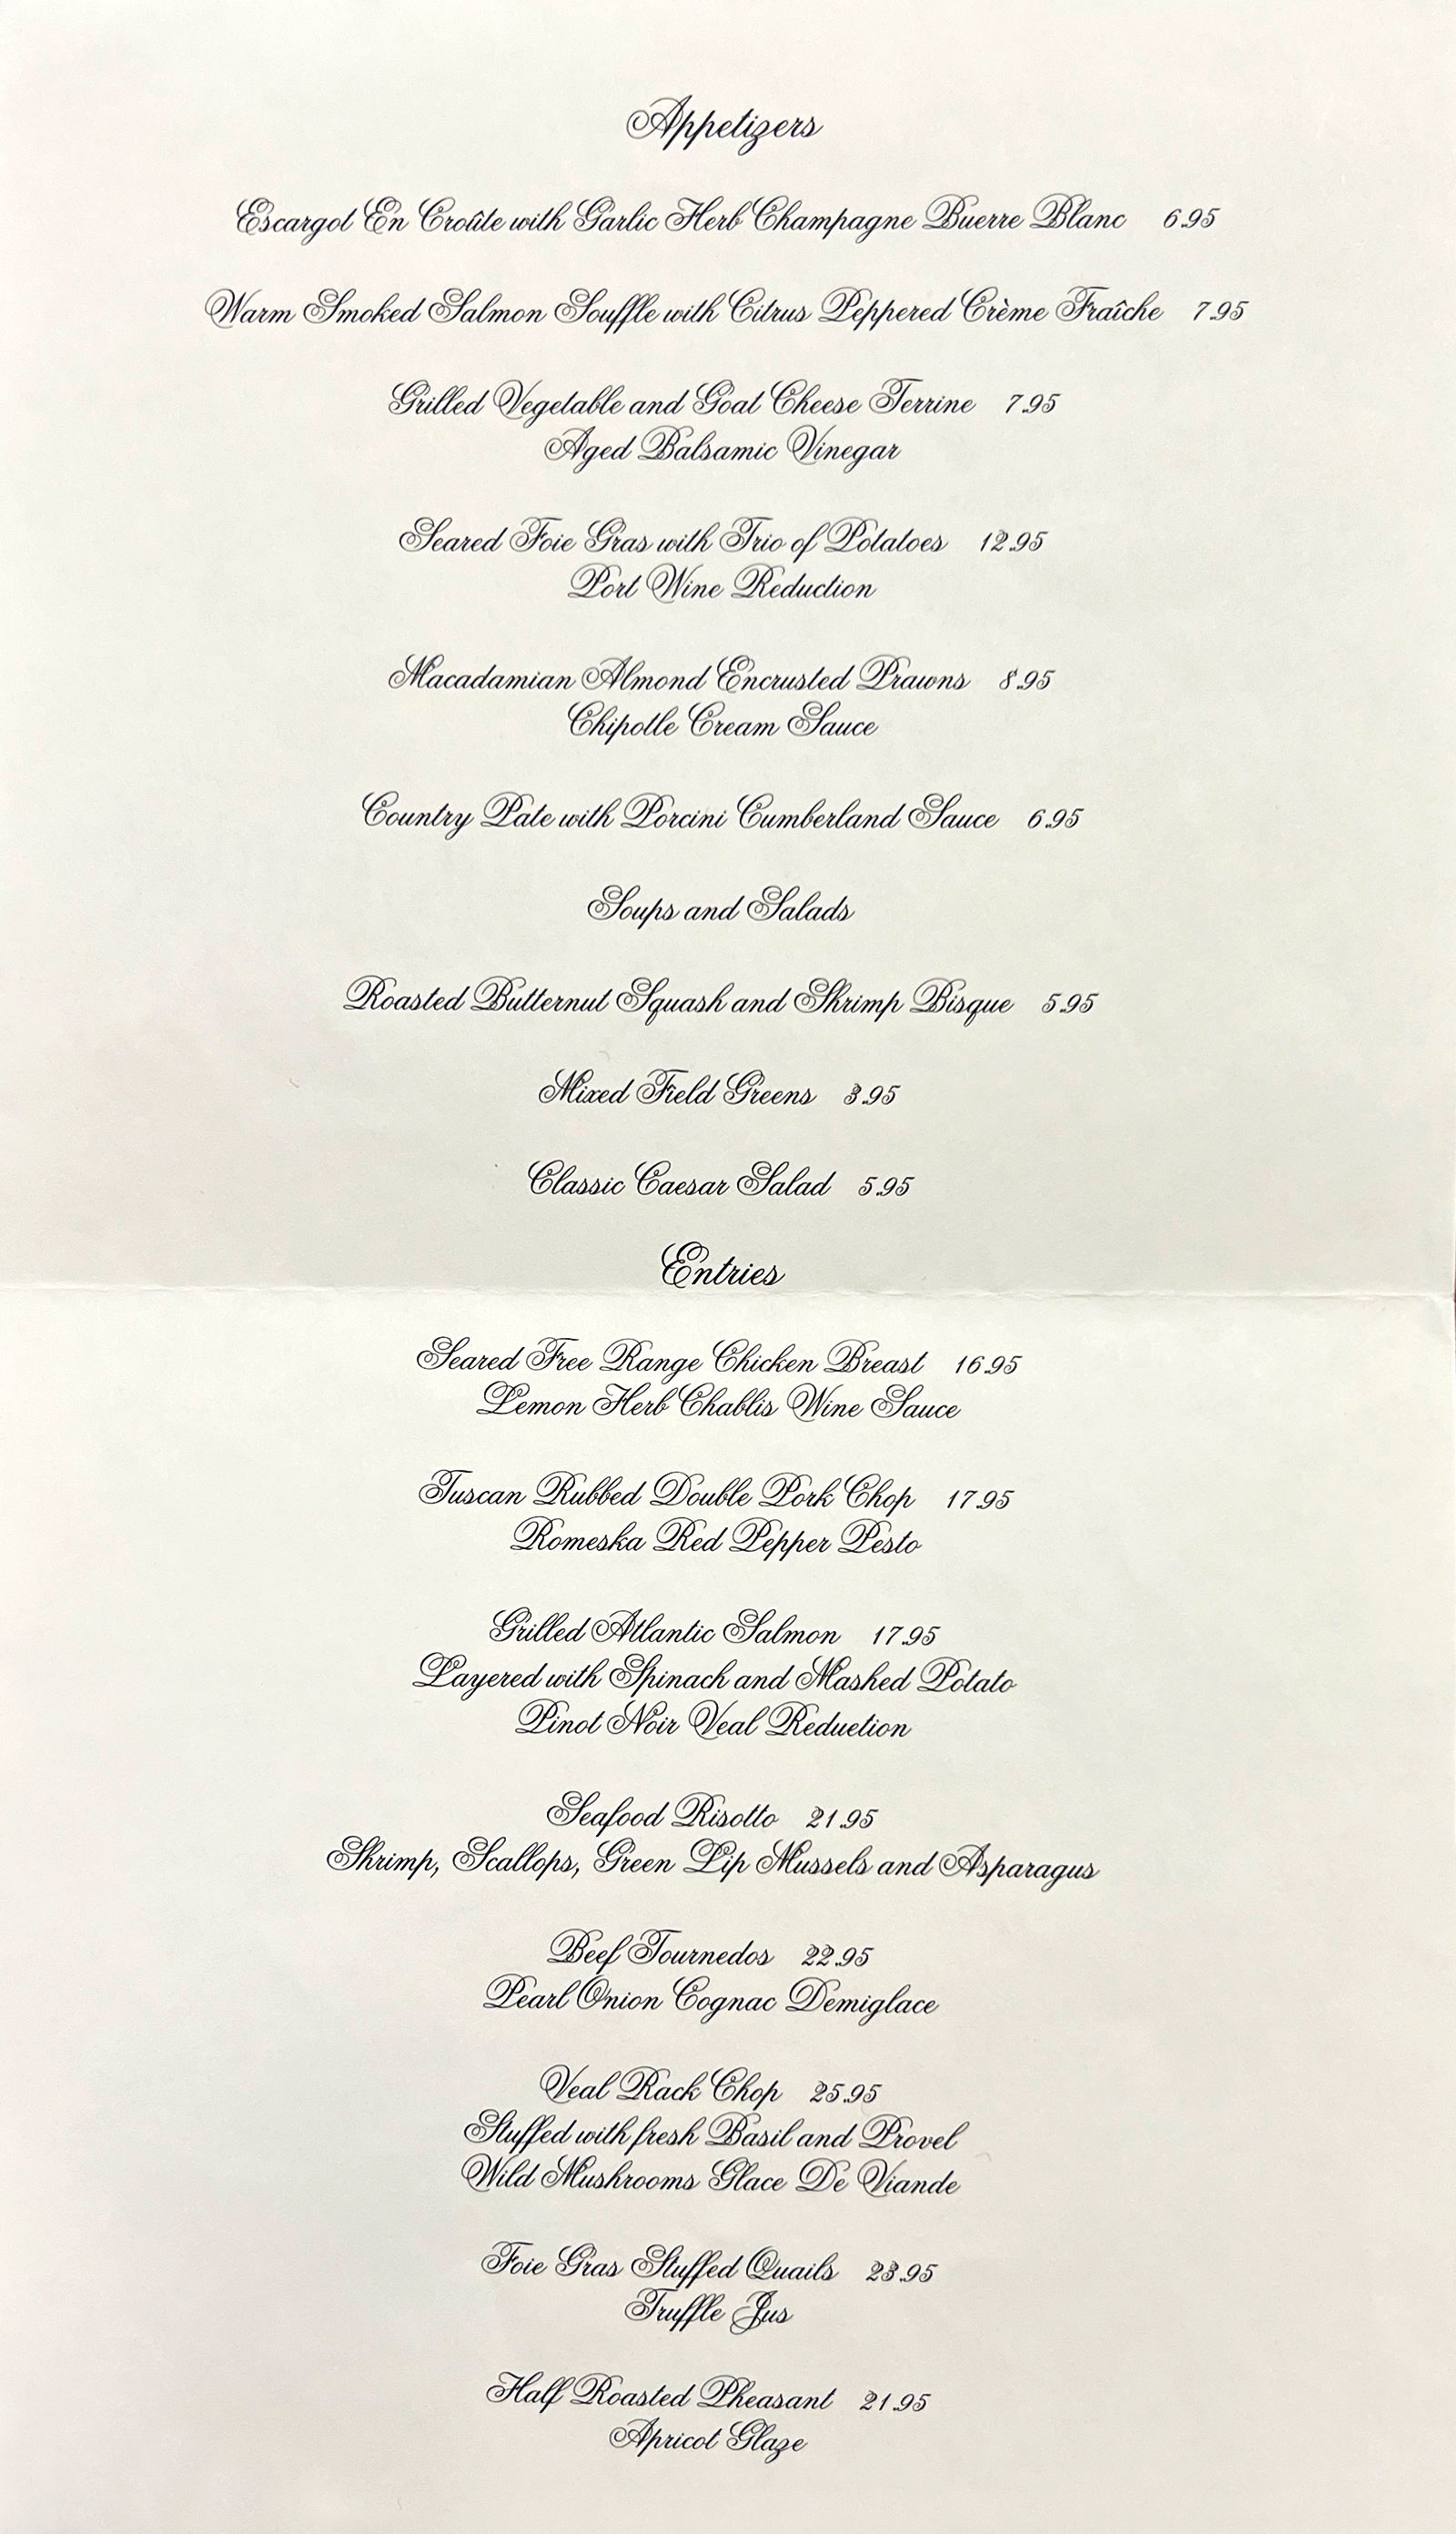 Appetizers
Escargot En Croûte with Garlic Herb Champagne Buerre Blanc 6.95
Warm Smoked Salmon Souffle with Citrus Peppered Crème Fraîche 7.95
Grilled Vegetable and Goat Cheese Terrine 7.95
Aged Balsamic Vinegar
Seared Foie Gras with Trio of Potatoes 12.95
Port Wine Reduction
Macadamian Almond Encrusted Prawns 8.95
Chipotle Cream Sauce
Country Pate with Porcini Cumberland Sauce 6.95
Soups and Salads
Roasted Butternut Squash and Shrimp Bisque 5.95
Mixed Field Greens 3.95
Classic Caesar Salad 5.95
Entries
Seared Free Range Chicken Breast 16.95
Lemon Herb Chablis Wine Sauce
Tuscan Rubbed Double Pork Chop 17.95
Romeska Red Pepper Pesto
Grilled Atlantic Salmon 17.95
Layered with Spinach and Mashed Potato
Pinot Noir Veal Reduction
Seafood Risotto 21.95
Shrimp, Scallops, Green Lip Mussels and Asparagus
Beef Tournedos 22.95
Pearl Onion Cognac Demiglace
Veal Rack Chop 25.95
Stuffed with fresh Basil and Provel
Wild Mushrooms Glace De Viande
Foie Gras Stuffed Quails 23.95
Truffle Jus
Half Roasted Pheasant 21.95
Apricot Glaze